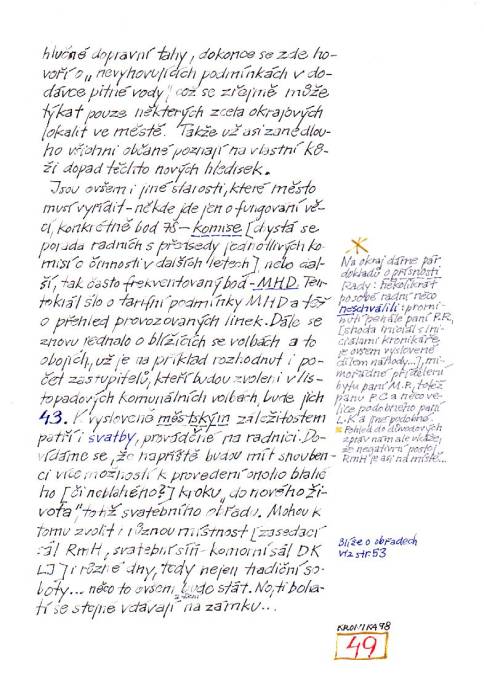 hlučné dopravní tahy, dokonce se zde ho-
voří o „nevyhovujících podmínkách v do-
dávce pitné vody", což se zřejmě může
týkat pouze některých zcela okrajových
lokalit ve městě. Takže už asi zanedlou-
ho všichni občané poznají na vlastní ků-
ži dopad těchto nových hledisek.
Jsou ovšem i jiné starosti, které město
musí vyřídit – někde jde jen o fungování vě-
cí, konkrétně bod 75 – komise [chystá se
porada radních s předsedy jednotlivých ko-
misí o činnosti v dalších letech], nebo dal-
ší, tak často frekventovaný bod – MHD. Ten-
tokrát šlo o tarifní podmínky MHD a též
o přehled provozovaných linek. Dále se
znovu jednalo o blížících se volbách a to
obojích, už je na příklad rozhodnut i po-
čet zastupitelů, kteří budou zvoleni v lis-
topadových komunálních volbách, bude jich
43. K vysloveně městským záležitostem
patří i svatby, prováděné na radnici. Do-
vídáme se, že napříště budou mít snouben-
ci více možností k provedení onoho blahé-
ho [či neblahého?] kroku „do nového ži-
vota", totiž svatebního obřadu. Mohou k
tomu zvolit i různou místnost [zasedací
sál RmH, svatební síň – komorní sál DK
[...] i různé dny, tedy nejen tradiční so-
boty... něco to ovšem bude stát. No, ti boha-
tí se stejně vdávají na zámku...
Na okraj dáme pár
dokladů o přísnosti
Rady: několikrát
po sobě radní něco
neschválili: promi-
nutí penále paní P.R.
[shoda iniciál s ini-
ciálami kronikáře
je ovšem vysloveně
dílem náhody...], mi-
mořádné přidělení
bytu paní M.P., totéž
panu P.Č a něco ve-
lice podobného paní
L.K a jiné podobné.
Pohled do důvodových
zpráv nám ale ukáže,
že negativní postoj
RmH je asi na místě...
Blíže o obřadech
viz str. 53
KRONIKA 98
49